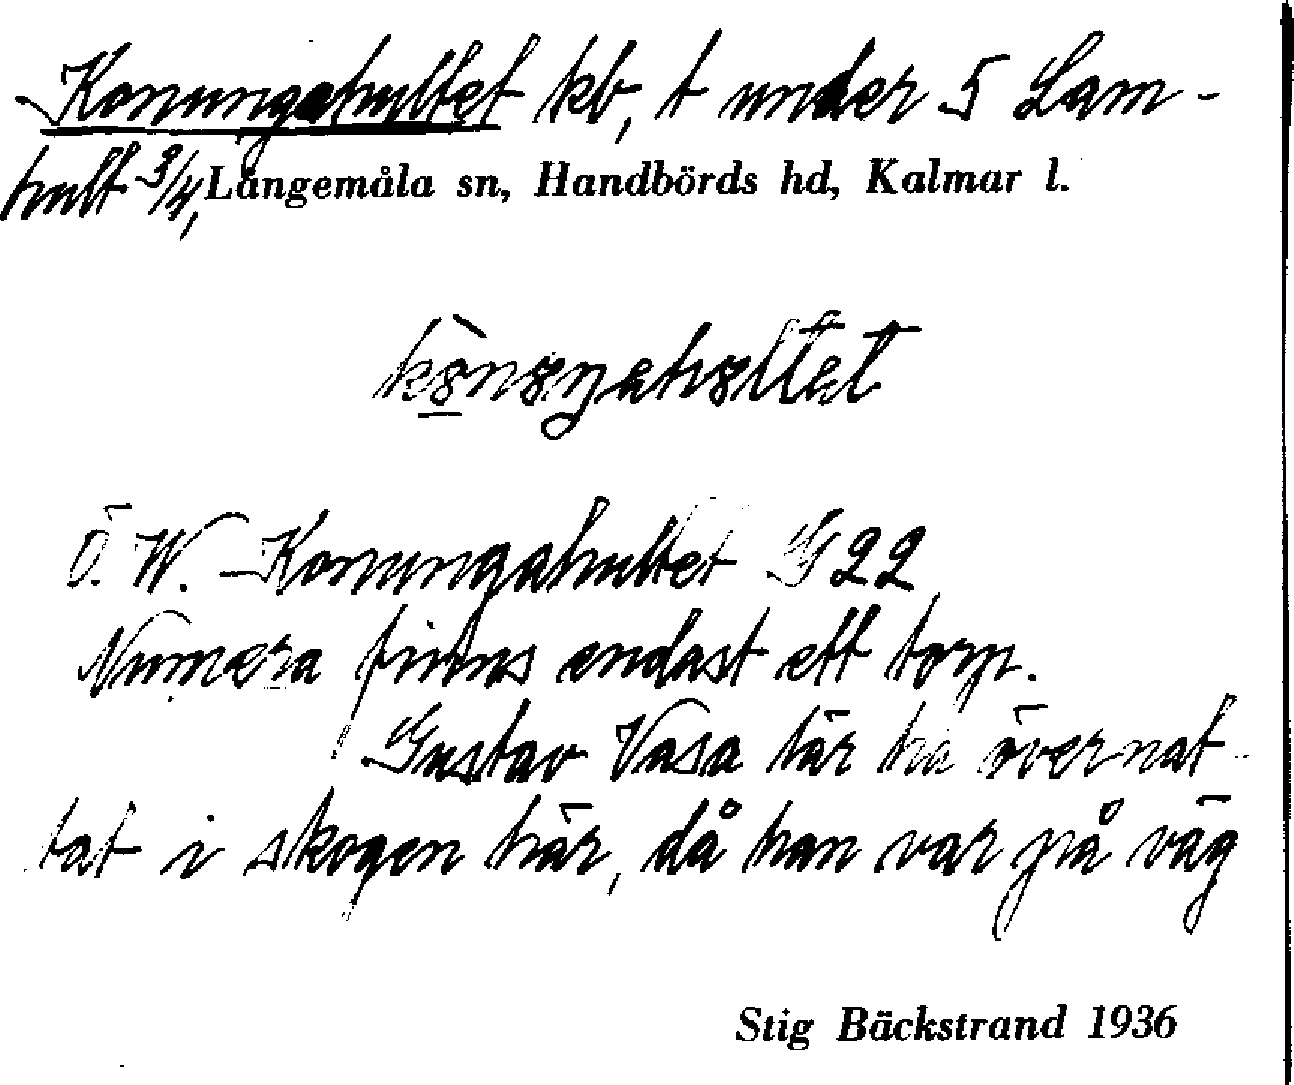 Konungahultet kb, t under 5 Lam-
hult 3/4, Långemåla sn, Handbörds hd, Kalmar l.
Ö. W. Konungahultet G 22
Numera finns endast ett torp.
Gustav Vasa lär ha övernat-
tat i skogen här, då han var på väg
Stig Bäckstrand 1936